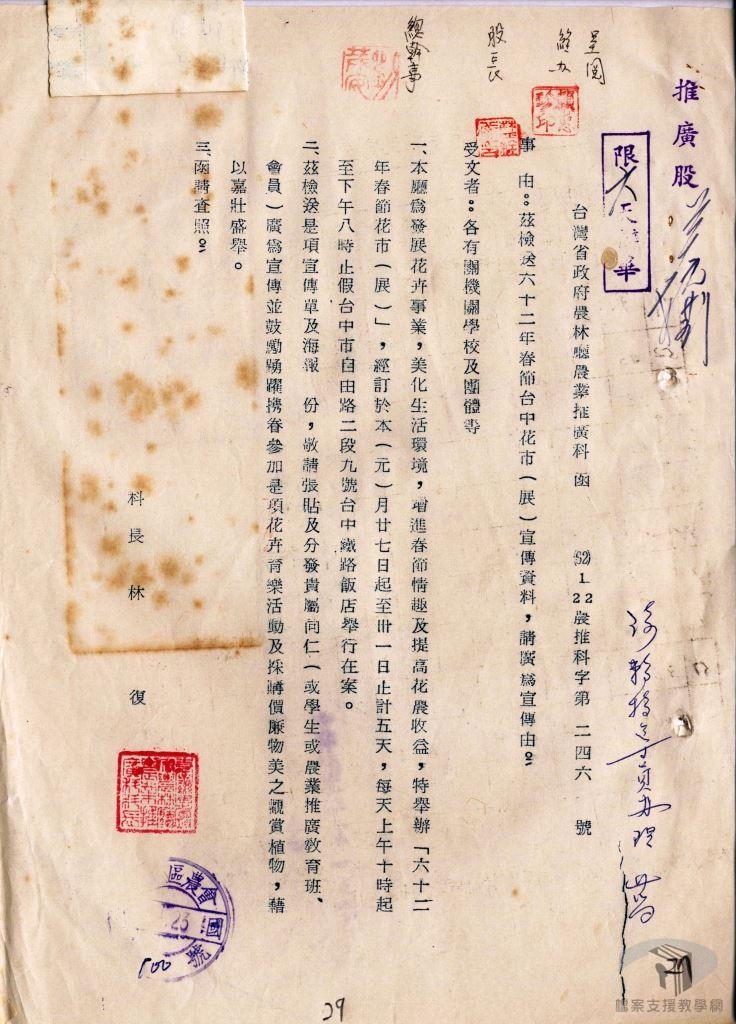 推廣股
限六天
台灣省政府農林廳農業推廣科 函 (62) 1 22 農推科字第 二四六 號
事 由：茲檢送六十二年春節台中花市（展）宣傳資料，請廣為宣傳由。
受文者：各有關機關學校及團體等
一、本廳為發展花卉事業，美化生活環境，增進春節情趣及提高花農收益，特舉辦「六十二
年春節花市（展）」，經訂於本（元）月廿七日起至卅一日止計五天，每天上午十時起
至下午八時止假台中市自由路二段九號台中鐵路飯店舉行在案。
二、茲檢送是項宣傳單及海報 份，敬請張貼及分發貴屬同仁（或學生或農業推廣教育班、
會員）廣為宣傳並鼓勵踴躍携眷參加是項花卉育樂活動及採購價廉物美之觀賞植物，藉
以嘉壯盛舉。
三、函請查照。
科長 林 復
呈閱
股長
總幹事
區農會
23
號
100
29
檔案支援教學網